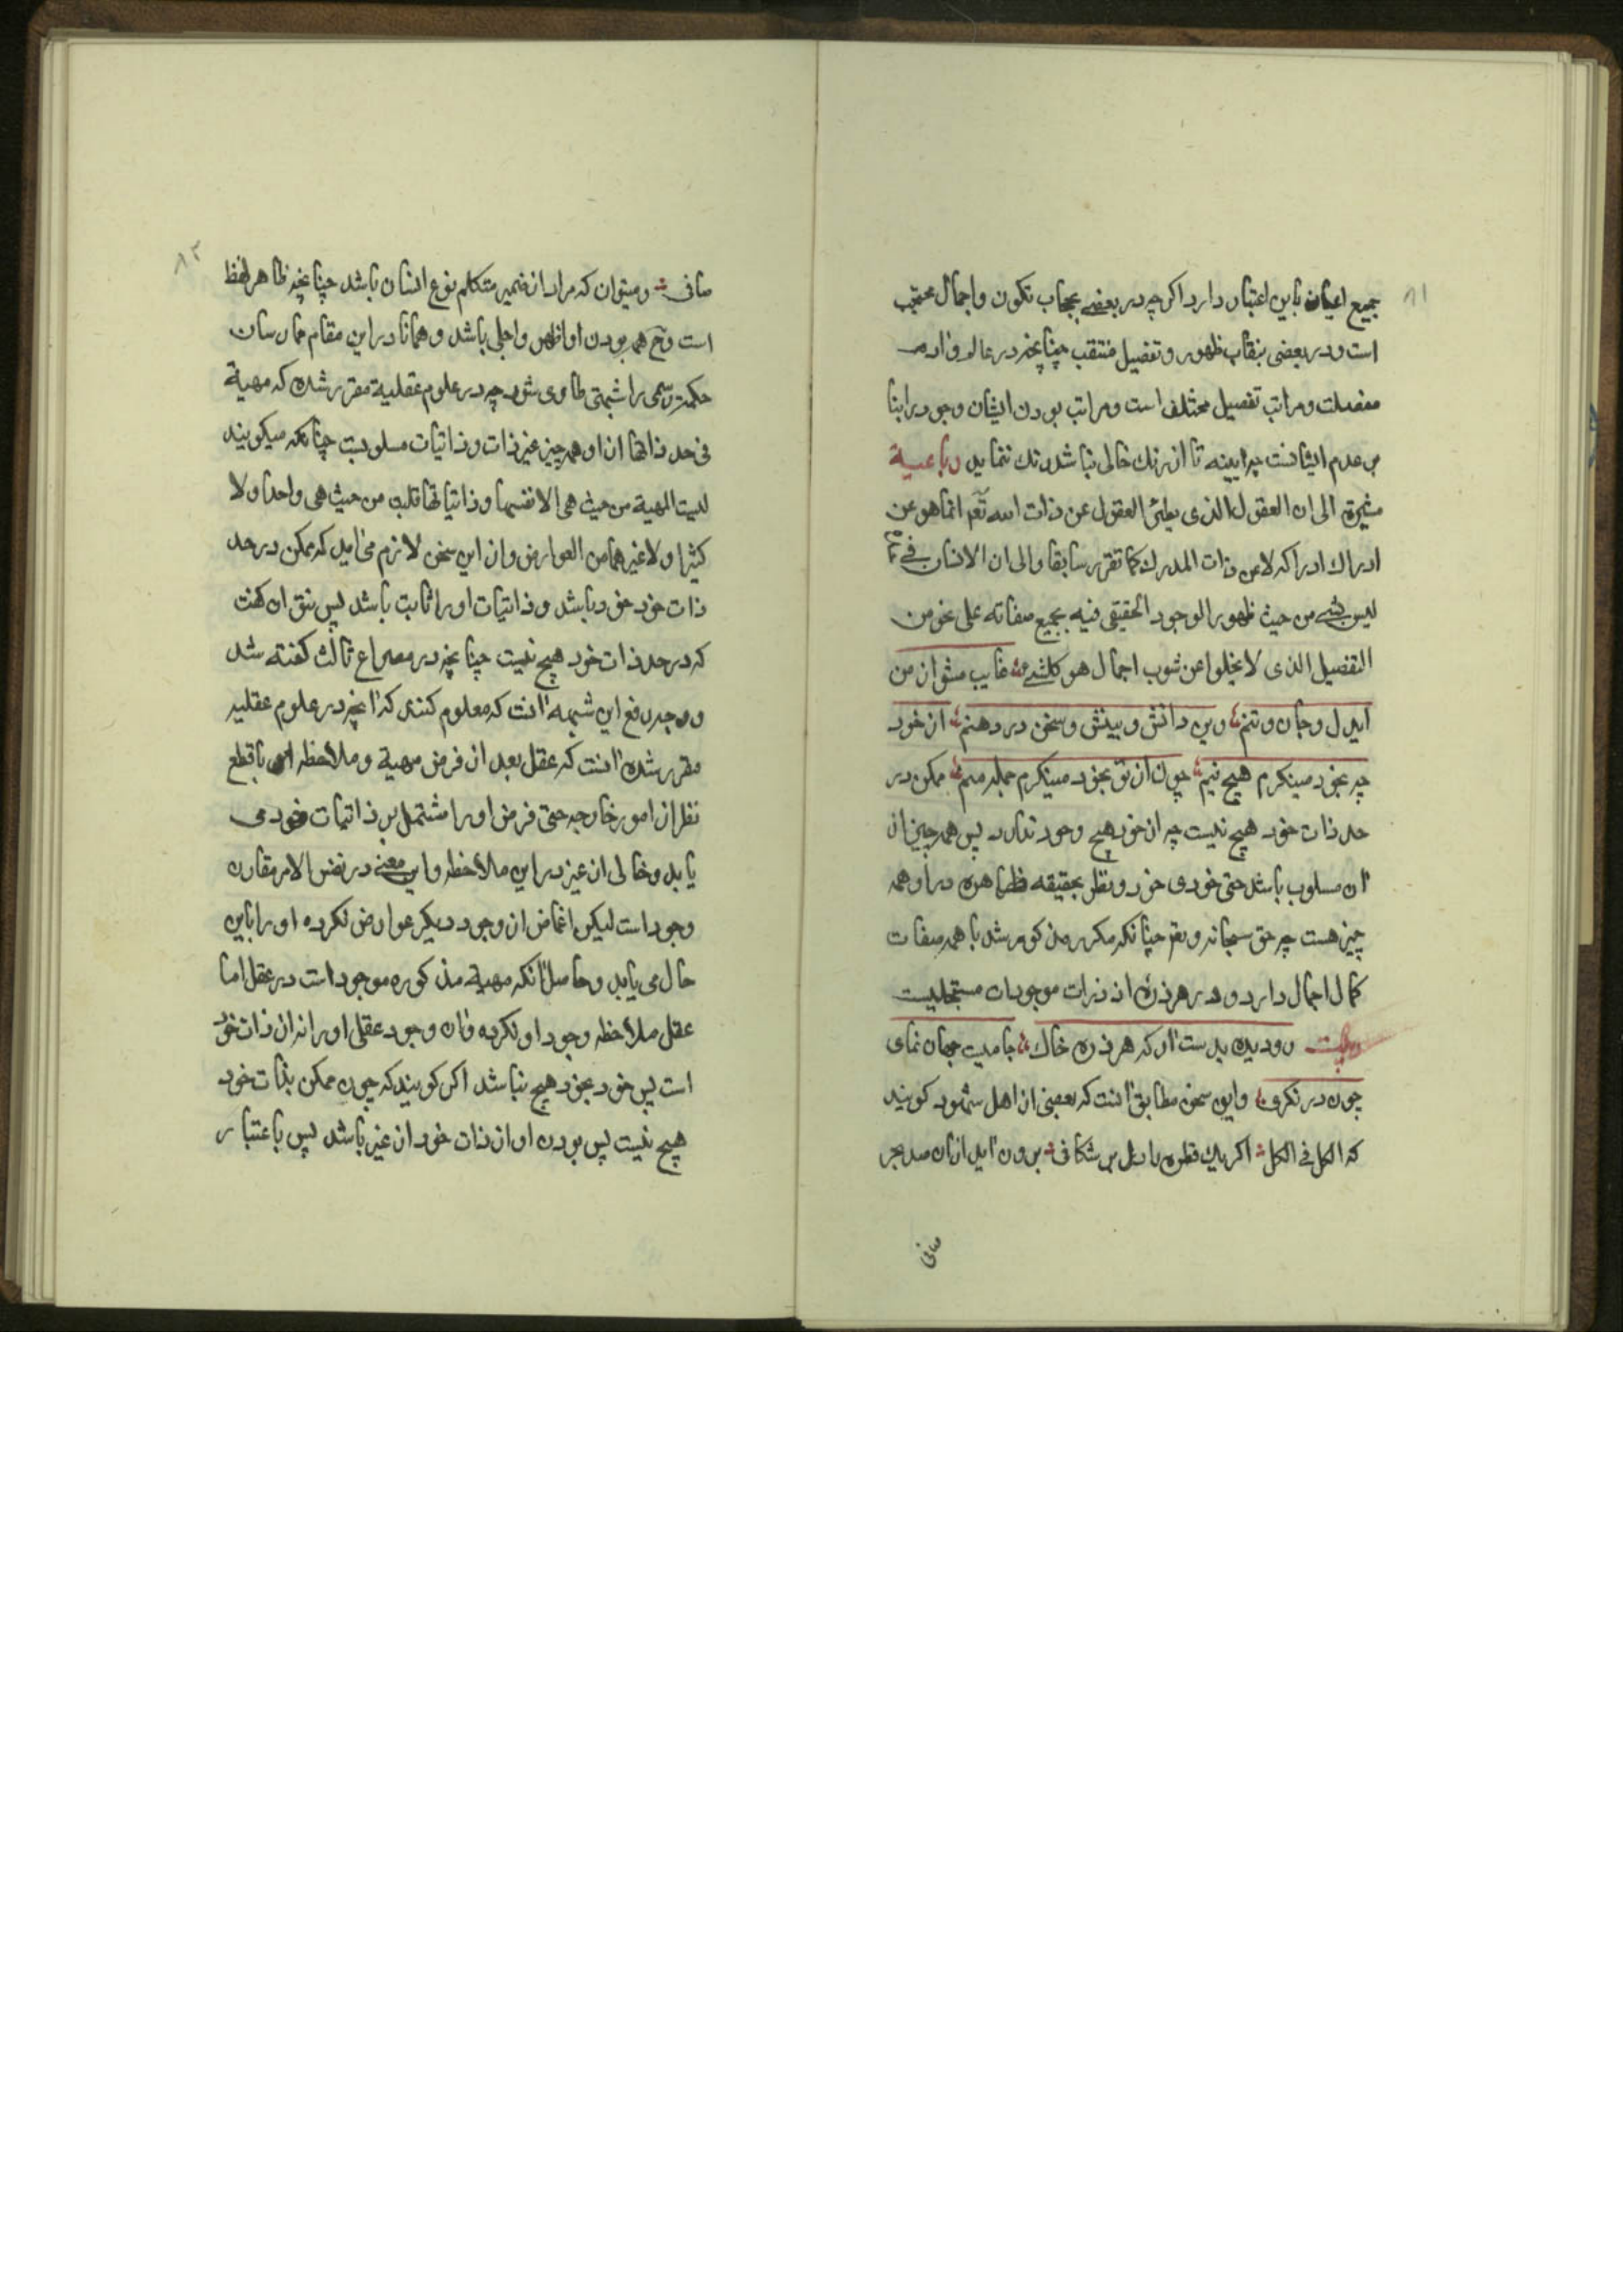 ۸۱
جمیع اعیان باین اعتبار دارد اکر چه در بعضے بحجاب تکون و اجمال محتجب
است و در بعضی بنقاب ظهور و تفصیل منتقب چنانچه در عالم و آدم
مفصلست و مراتب تفصیل مختلف است و مراتب بودن ایشان وجود را بنا
بر عدم ایشانست چه ایینه تا از رنك خالی نباشد رنك ننماید رباعیة
مشیرة الی ان العقول الذی یطلئ العقول عن ذات الله تعم انما هو عن
ادراك ادراکه لا عن ذات المدرك کما تقرر سابقا و الی ان الانسان فے
لیس بشے من حیث ظهور الوجود الحقیقی فیه بجمیع صفاته علی نحو من
التفصیل الذی لا یخلوا عن شوب اجمال هو کلشے غایب مشو از من
ایدل و جان و تنم وین دانش و بینش و سخن در دهنم از خود
چه بخود مینکرم هیچ نیم چون از تو بخود مینکرم جمله منم ممکن در
حد ذات خود هیچ نیست چه از خود هیچ وجود ندارد پس همه چیز از
آن مسلوب باشد حتی خودی خود و نظر بحقیقه ظاهره در او همه
چیز هست چه حق سبحانه و تعم چنانکه مکرر مذکور شد با همه صفات
کمال اجمال دارد و در هر ذرهٔ از ذرات موجودات متجلیست
بیت رو دیده بدست آر که هر ذره خاك جامیست جهان نمای
چون در نکری و این سخن مطابق آنست که بعضی از اهل شهود کویند
که الکل فے الکل اکر یك قطره را دل بر شکافی برون آید ازان صد بحر
صافی
۸۲
صافی و میتوان که مراد از ضمیر متکلم نوع انسان باشد چنانچه ظاهر لفظ
است و ح همه بودن او اظهر و اجلی باشد و همانا در این مقام مارسان
حکمت رسمی را شبهتی طاری شود چه در علوم عقلیة مقرر شده که مهیة
فی حد ذاتها از او همه چیز غیر ذات و ذاتیات مسلوبست چنانکه میکویند
لیست المهیة من حیث هی الا نفسها و ذاتیاتها قلیت من حیث هی واحدا و لا
کثیرا و لا غیرهما من العوارض و از این سخن لازم می آید که ممکن در حد
ذات خود خود باشد و ذاتیات او را ثابت باشد پس نتوان کفت
که در حد ذات خود هیچ نیست چنانچه در مصراع ثالث کفته شد
و وجه رفع این شبهه آنست که معلوم کنند که آنچه در علوم عقلیه
مقرر شده آنست که عقل بعد از فرض مهیة و ملاحظه او با قطع
نظر از امور خارجه حتی فرض او را مشتمل بر ذاتیات خود می
یابد و خالی از غیر در این ملاحظه و این معنے در نفس الامر مقارن
وجود است لیکن اغماض از وجود دیکر عوارض نکرده او را باین
حال می یابد و حاصل آنکه مهیة مذکوره موجود است در عقل اما
عقل ملاحظه وجود او نکرده و ان وجود عقلی او را نه از ذات خود
است پس خود بخود هیچ نباشد اکر کویند که چون ممکن بذات خود
هیچ نیست پس بودن او از ذات خود از غیر باشد پس باعتبار